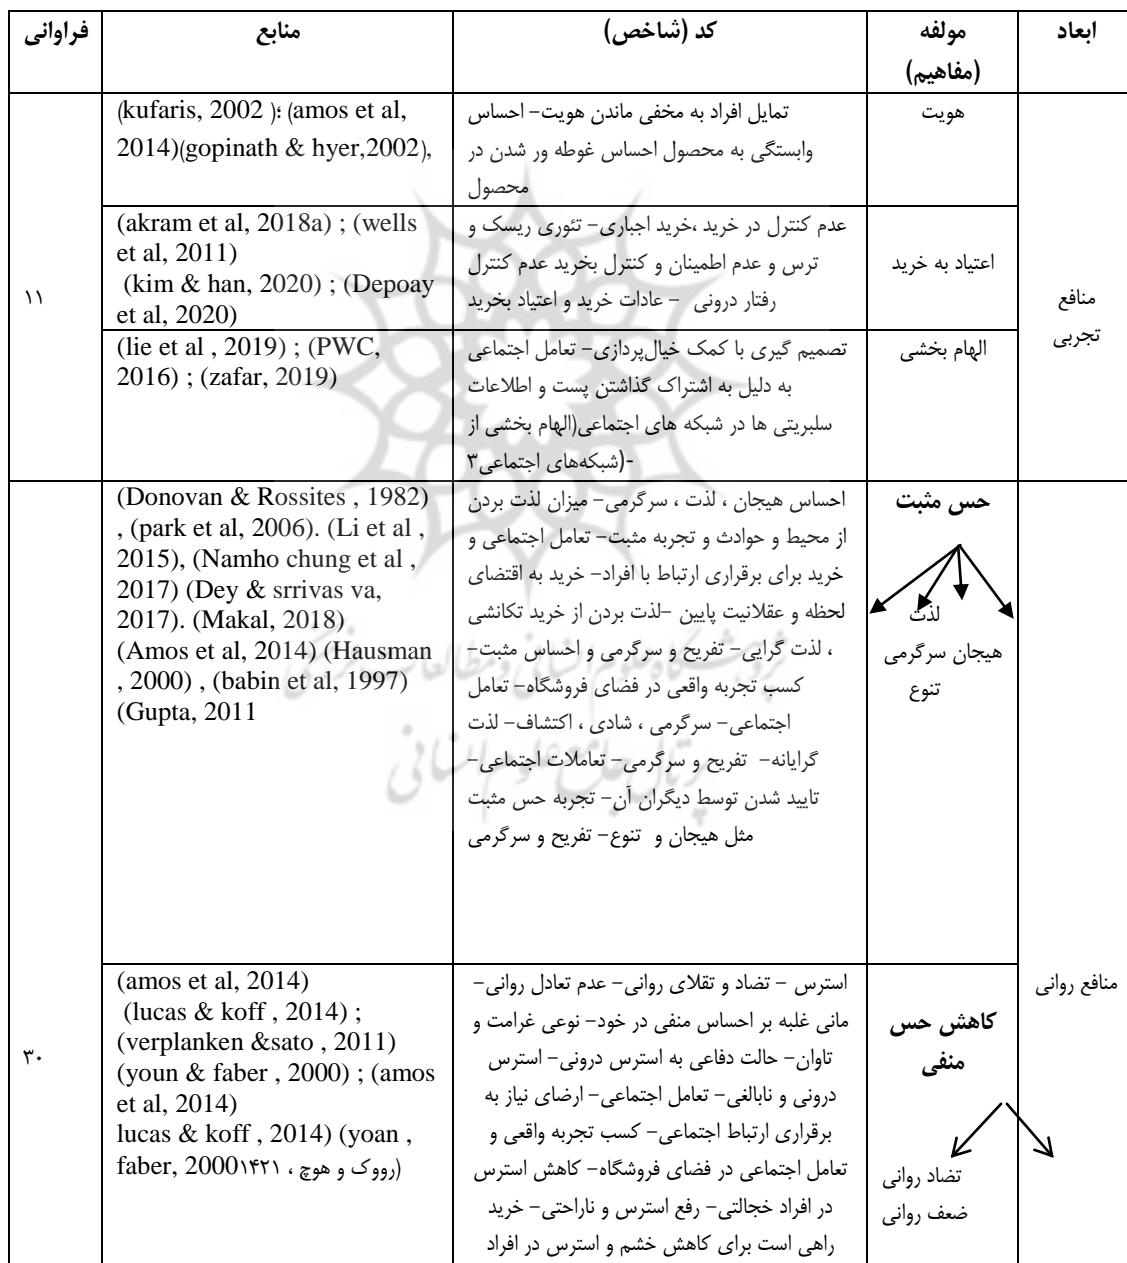 ابعاد
مولفه
(مفاهیم)
کد (شاخص)
منابع
فراوانی
منافع
تجربی
هویت
تمایل افراد به مخفی ماندن هویت– احساس
وابستگی به محصول احساس غوطه ور شدن در
محصول
(kufaris, 2002 )؛ (amos et al,
2014)(gopinath & hyer,2002),
۱۱
اعتیاد به خرید
عدم کنترل در خرید ،خرید اجباری– تئوری ریسک و
ترس و عدم اطمینان و کنترل بخرید عدم کنترل
رفتار درونی – عادات خرید و اعتیاد بخرید
(akram et al, 2018a) ; (wells
et al, 2011)
(kim & han, 2020) ; (Depoay
et al, 2020)
الهام بخشی
تصمیم گیری با کمک خیال‌پردازی– تعامل اجتماعی
به دلیل به اشتراک گذاشتن پست و اطلاعات
سلبریتی ها در شبکه های اجتماعی(الهام بخشی از
-(شبکه‌های اجتماعی۳
(lie et al , 2019) ; (PWC,
2016) ; (zafar, 2019)
منافع روانی
حس مثبت
لذت
هیجان سرگرمی
تنوع
احساس هیجان ، لذت ، سرگرمی– میزان لذت بردن
از محیط و حوادث و تجربه مثبت– تعامل اجتماعی و
خرید برای برقراری ارتباط با افراد– خرید به اقتضای
لحظه و عقلانیت پایین –لذت بردن از خرید تکانشی
، لذت گرایی– تفریح و سرگرمی و احساس مثبت–
کسب تجربه واقعی در فضای فروشگاه– تعامل
اجتماعی– سرگرمی ، شادی ، اکتشاف– لذت
گرایانه– تفریح و سرگرمی– تعاملات اجتماعی–
تایید شدن توسط دیگران آن– تجربه حس مثبت
مثل هیجان و تنوع– تفریح و سرگرمی
(Donovan & Rossites , 1982)
, (park et al, 2006). (Li et al ,
2015), (Namho chung et al ,
2017) (Dey & srrivas va,
2017). (Makal, 2018)
(Amos et al, 2014) (Hausman
, 2000) , (babin et al, 1997)
(Gupta, 2011
۳۰
کاهش حس
منفی
تضاد روانی
ضعف روانی
استرس – تضاد و تقلای روانی– عدم تعادل روانی–
مانی غلبه بر احساس منفی در خود– نوعی غرامت و
تاوان– حالت دفاعی به استرس درونی– استرس
درونی و نابالغی– تعامل اجتماعی– ارضای نیاز به
برقراری ارتباط اجتماعی– کسب تجربه واقعی و
تعامل اجتماعی در فضای فروشگاه– کاهش استرس
در افراد خجالتی– رفع استرس و ناراحتی– خرید
راهی است برای کاهش خشم و استرس در افراد
(amos et al, 2014)
(lucas & koff , 2014) ;
(verplanken &sato , 2011)
(youn & faber , 2000) ; (amos
et al, 2014)
lucas & koff , 2014) (yoan ,
faber, 2000۱۴۲۱ ، رووک و هوچ)
پژوهشگاه علوم انسانی و مطالعات فرهنگی
پرتال جامع علوم انسانی